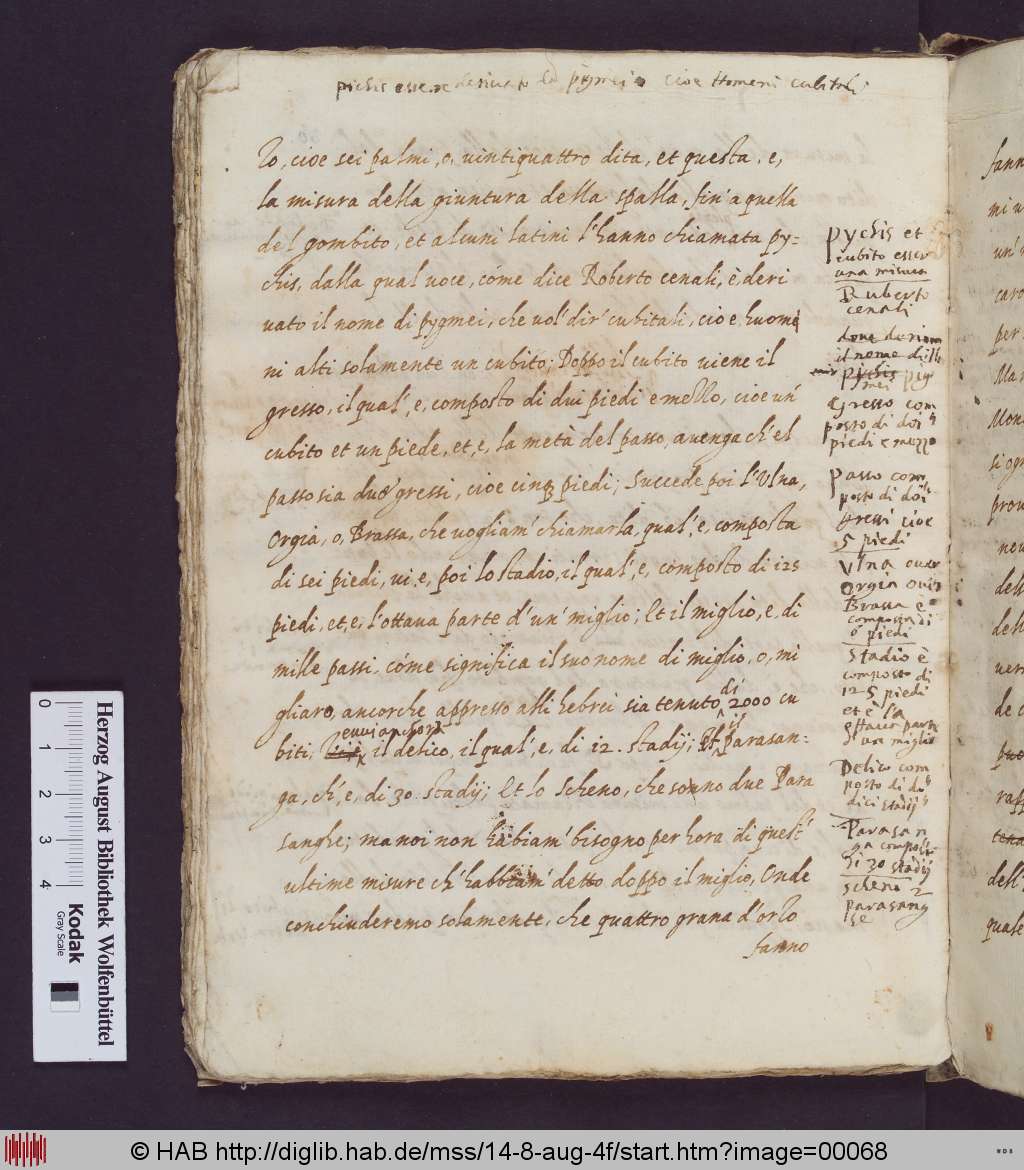 pichis essere derivato la pygmei cioe Homeni cubitali
Zo, cioe sei palmi, o, uintiquattro dita, et questa, e,
la misura della giuntura della spalla, fin' a quella
del gombito, et alcuni latini l'hanno chiamata py=
chis, dalla qual uoce, cóme dice Roberto cenali, è, deri
uato il nome di pygmei, che uol' dir' cubitali, cioe huomi
ni alti solamente un cubito; Doppo il cubito uiene il
gresso, il qual', e, composto di dui piedi e mezzo, cioe un'
cubito et un piede, et, e, la metà del passo, auenga ch'el
passo sia due gressi, cioe cinq; piedi; Succede poi l'Ulna,
Orgia, o, Brassa, che uogliam' chiamarla, qual', e, composta
di sei piedi, ui, e, poi lo stadio, il qual', e, composto di 125
piedi, et, e, l'ottaua parte d'un' miglio; Et il miglio, e, di
mille passi, cóme significa il suo nome di miglio, o, mi
gliaro, ancorche appresso alli hebrei sia tenuto di 2000 cu
biti, euui anchora il delico, il qual', e, di 12. stadij; il parasan-
ga, ch', e, di 30 stadij; Et lo Scheno, che sonno due Para
sanghe; ma noi non habiam' bisogno per hora di quest'
ultime misure ch'habbiam' detto doppo il miglio, Onde
conchiuderemo solamente, che quattro grana d'orzo
fanno
pychis et
cubito esser
una misura
Ruberto
cenali
doue deriua
il nome delli
pychis pyg
mei
Gresso com
posto di doi
piedi e mezzo
Passo com
posto di doi
Gressi cioe
5 piedi
Vlna ouer
orgia ouer
Brassa è
composta di
6 piedi
Stadio è
composto di
125 piedi
et è la
ottaua parte
d'un miglio
Delico com
posto di do
dici stadij
Parasan
ga composta
di 30 stadij
scheno 2
parasang
he
fann
mi u
un'
caro
per
Mar
Mon
si og
prou
neu
dell
dell
uer
de c
raff
dell'
quale
0 1 2 3 4
Kodak
Gray Scale
Herzog August Bibliothek Wolfenbüttel
© HAB http://diglib.hab.de/mss/14-8-aug-4f/start.htm?image=00068